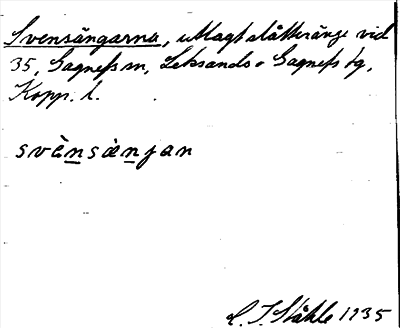 Svensängarna, utlagt slåtteränge vid
35, Gagnefs sn, Leksands o Gagnefs tg,
Kopp. l.
svènsàenjan
C. I. Ståhle 1935